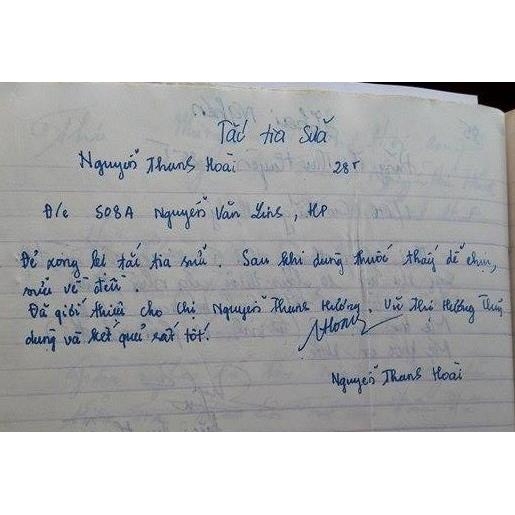 Tắc tia sữa
Nguyễn Thanh Hoài 28T
Đ/c 508A Nguyễn Văn Linh, HP
Đẻ xong bị tắc tia sữa. Sau khi dùng thuốc thấy dễ chịu,
sữa về đều.
Đã giới thiệu cho chị Nguyễn Thanh Hương, Vũ Thị Hương Thùy
dùng và kết quả rất tốt.
Nguyễn Thanh Hoài